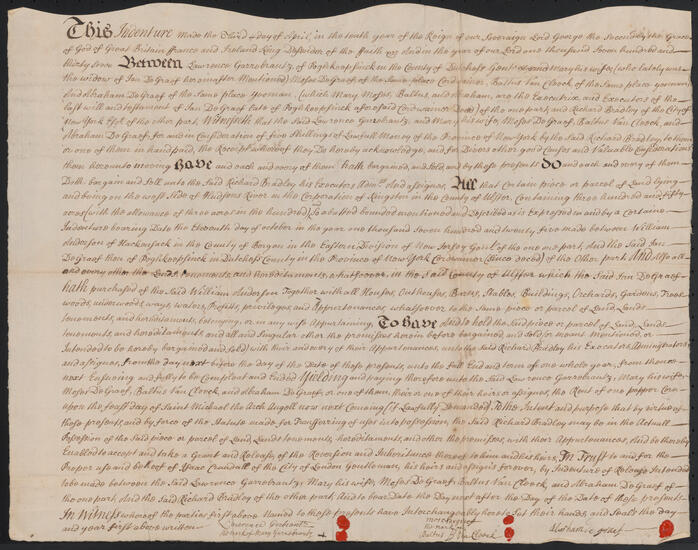 This Indenture made the Third day of April, in the tenth year of the Reign of our Soveraign Lord George the Second by the Grace
of God of Great Britain France and Ireland King Defender of the Faith &c and in the year of our Lord one thousand Seven hundred and
thirty Seven Between Lawrence Garrebrantz, of Poghkeepsinck in the County of Dutchess Gent and Mary his wife (who lately was
the widow of Jan De Graef hereinafter Mentioned) Moses De Graef of the Same place Cordwainer, Baltus Van Cleeck of the Same place yeoman
And Abraham De Graef of the Same place yeoman (which Mary, Moses, Baltus, and Abraham, are the Executrix, and Executors of the
last will and testament of Jan De Graef late of Poghkeepsinck aforesaid Cordwainer Deced) of the one part, and Richard Bradley of the City of
New York of the other part, Witnesseth that the Said Lawrence Garrebrantz, and Mary his wife, Moses De Graef, Baltus Van Cleeck, and
Abraham De Graef, for and in Consideration of five Shillings of Lawfull Money of the Province of New York by the Said Richard Bradley, to them
or one of them in hand paid, the Receipt whereof they Do hereby acknowledge, and for Divers other good Causes and Valuable Considerations
them hereunto moving Have and each and every of them hath bargained, and Sold, and by these presents Do and each and every of them
Doth bargain and Sell unto the Said Richard Bradley his Executors Admrs And assignes, All that Certain piece or parcel of Land lying
and being on the west Side of Hudsons River in the Corporation of Kingston in the County of Ulster, Containing three hundred and fifty
acres (with the allowance of three acres in the hundred) butted bounded mentioned and Described as is Expressed in and by a Certaine
Indenture bearing Date the Eleventh day of october in the year one thousand Seven hundred and twenty five made between William
Anderson of Hackensack in the County of Bergen in the Eastern Division of New Jersey Gent of the one part, And the Said Jan
De Graef then of Poghkeepsinck in Dutchess County in the Province of New York Cordwainer (Since deced) of the Other part And Also all
and every other the Lands, tenements, and hereditaments, whatsoever, in the Said County of Ulster which the Said Jan De Graef
hath purchased of the Said William Anderson Together with all Houses, Outhouses, Barns, Stables, Buildings, Orchards, Gardens, Trees
woods, underwoods, ways, waters, Profits, priviledges, and Appurtenances, whatsoever to the Same piece or parcel of Land, Lands
tenements, and hereditaments, belonging, or in any wise Appertaining, To have And to hold the Said piece or parcel of Land, Lands
tenements, and hereditaments, and all and Singular other the premisses herein before bargained and Sold, or meant, mentioned, or
Intended to be hereby bargained and Sold, with their and every of their Appurtenances, unto the Said Richard Bradley his Executors, Administrators
and assignes, from the day next before the day of the Date of these presents, unto the full End and term of one whole year, from thence
next Ensuing and fully to be Compleat and Ended Yielding and paying therefore unto the Said Lawrence Garrebrantz, Mary his wife
Moses De Graef, Baltus Van Cleeck, and Abraham De Graef or one of them, their or one of their heirs or assignes, the Rent of one pepper Corn
upon the feast day of Saint Michael the Arch Angell now next Coming (if Lawfully Demanded) To the Intent and purpose that by virtue of
these presents, and by force of the Statute made for Transferring of uses into possession, the Said Richard Bradley may be in the Actuall
Possession of the Said piece or parcel of Land, Lands tenements, hereditaments, and other the premisses, with their Appurtenances, And be thereby
Enabled to accept and take a Grant and Release, of the Reversion and Inheritance thereof to him and his heirs, In Trust to and for the
Proper use and behoof of Isaac Crandall of the City of London Gentleman, his heirs and assigns forever, by Indenture of Release Intended
to be made between the Said Lawrence Garrebrantz, Mary his wife, Moses De Graef, Baltus Van Cleeck, and Abraham De Graef of
the one part, And the Said Richard Bradley of the other part, And to bear Date the Day next after the Day of the Date of these presents
In Witness whereof the parties first above Named to these presents have Interchangeably hereto Set their hands and Seals the day
and year first above written